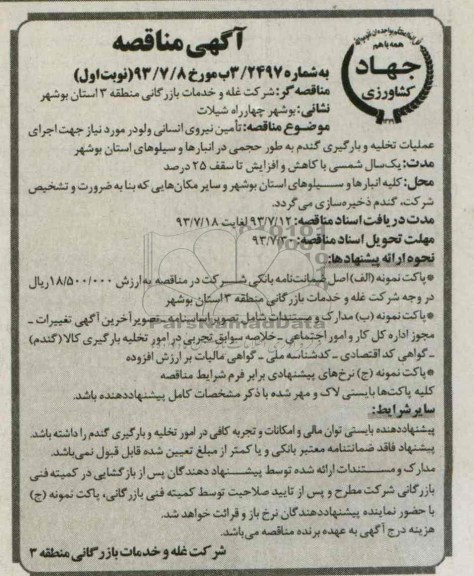 آگهی مناقصه
به شماره ۳/۲۴۹۷ب مورخ ۹۳/۷/۸ (نوبت اول)
همه با هم
جهاد
کشاورزی
مناقصه گر: شرکت غله و خدمات بازرگانی منطقه ۳ استان بوشهر
نشانی: بوشهر چهارراه شیلات
موضوع مناقصه: تأمین نیروی انسانی ولودر مورد نیاز جهت اجرای
عملیات تخلیه و بارگیری گندم به طور حجمی در انبارها و سیلوهای استان بوشهر
مدت: یک سال شمسی با کاهش و افزایش تا سقف ۲۵ درصد
محل: کلیه انبارها و سیلوهای استان بوشهر و سایر مکان‌هایی که بنا به ضرورت و تشخیص
شرکت، گندم ذخیره‌سازی می‌گردد.
مدت دریافت اسناد مناقصه: ۹۳/۷/۱۲ لغایت ۹۳/۷/۱۸
مهلت تحویل اسناد مناقصه: ۹۳/۷/۳۰
نحوه ارائه پیشنهادها:
*پاکت نمونه (الف) اصل ضمانت‌نامه بانکی شرکت در مناقصه به ارزش ۱۸/۵۰۰/۰۰۰ ریال
در وجه شرکت غله و خدمات بازرگانی منطقه ۳ استان بوشهر
*پاکت نمونه (ب) مدارک و مستندات شامل تصویر اساسنامه ـ تصویر آخرین آگهی تغییرات ـ
مجوز اداره کل کار و امور اجتماعی ـ خلاصه سوابق تجربی در امور تخلیه بارگیری کالا (گندم)
ـ گواهی کد اقتصادی ـ کدشناسه ملی ـ گواهی مالیات بر ارزش افزوده
*پاکت نمونه (ج) نرخ‌های پیشنهادی برابر فرم شرایط مناقصه
کلیه پاکت‌ها بایستی لاک و مهر شده با ذکر مشخصات کامل پیشنهاددهنده باشد.
سایر شرایط:
پیشنهاددهنده بایستی توان مالی و امکانات و تجربه کافی در امور تخلیه و بارگیری گندم را داشته باشد.
پیشنهاد فاقد ضمانتنامه معتبر بانکی و یا کمتر از مبلغ تعیین شده قابل قبول نمی‌باشد.
مدارک و مستندات ارائه شده توسط پیشنهاد دهندگان پس از بازگشایی در کمیته فنی
بازرگانی شرکت مطرح و پس از تایید صلاحیت توسط کمیته فنی بازرگانی، پاکت نمونه (ج)
با حضور نماینده پیشنهاددهندگان نرخ باز و قرائت خواهد شد.
هزینه درج آگهی به عهده برنده مناقصه می‌باشد.
شرکت غله و خدمات بازرگانی منطقه ۳